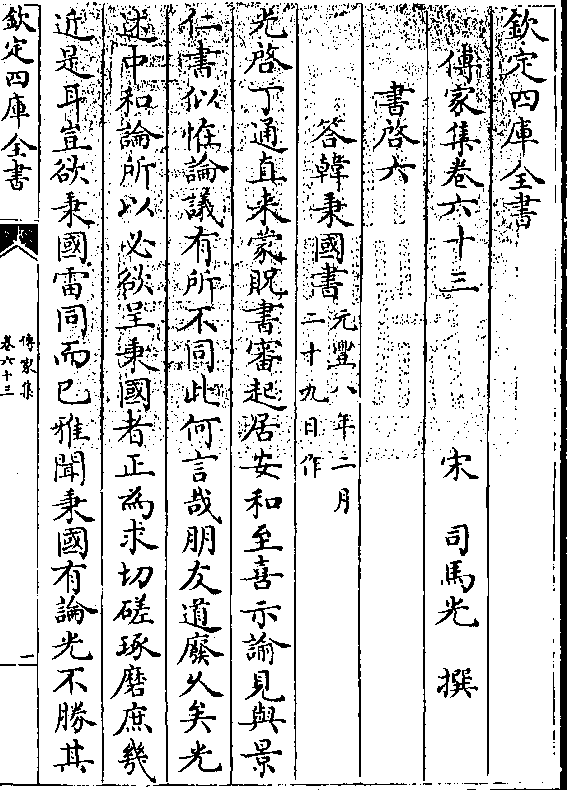 欽定四庫全書
傳家集卷六十三　　宋　司馬光　撰
書啓六
答韓秉國書元豐八年二月
二十九日作
光啓丁通直来蒙貺書審起居安和至喜示諭見與景
仁書似恠論議有所不同此何言哉朋友道廢乆矣光
述中和論所以必欲呈秉國者正為求切磋琢磨庶幾
近是耳豈欲秉國雷同而已雅聞秉國有論光不勝其
欽定四庫全書
傳家集
卷六十三
一